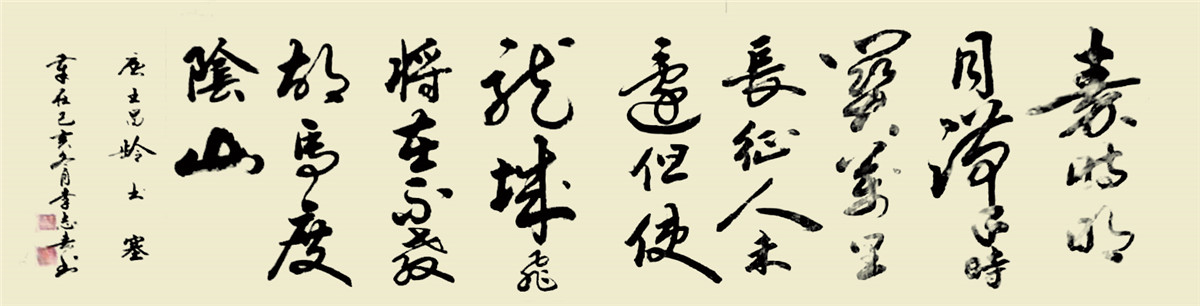 秦時明
月漢時
關萬里
長征人未
還但使
龍城飛
將在不教
胡馬度
陰山
唐王昌齡出塞
歲在己亥冬月李志書